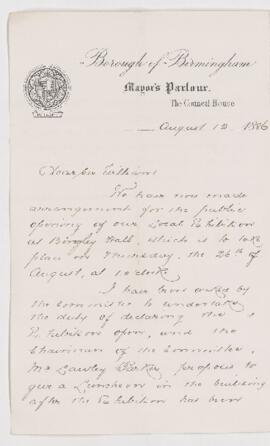 Borough of Birmingham
Mayor's Parlour.
The Council House
August 12, 1886
Dear Sir William
We have now made
arrangements for the public
opening of our Local Exhibition
at Bingley Hall, which is to take
place on Thursday, the 26th of
August, at 1 o'clock.
I have been asked by
the Committee to undertake
the duty of declaring the
Exhibition open, and the
Chairman of the Committee,
Mr Lawley Parker, proposes to
give a Luncheon in the building
after the Exhibition has been